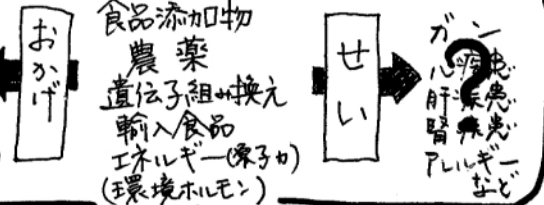 おかげ
食品添加物
農薬
遺伝子組み換え
輸入食品
エネルギー(原子力)
(環境ホルモン)
せい
ガン
心疾患
肝疾患
腎疾患
アレルギー
など
?